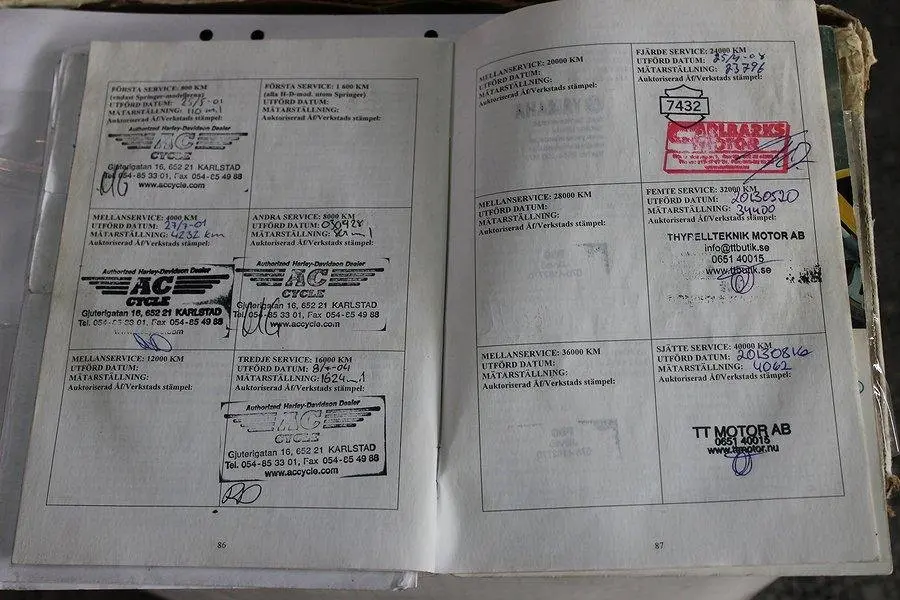 FÖRSTA SERVICE: 800 KM
(endast Springer-modellerna)
UTFÖRD DATUM: 25/5-01
MÄTARSTÄLLNING: 110 ml
Auktoriserad Åf/Verkstads stämpel:
Authorized Harley-Davidson Dealer
AC
CYCLE
Gjuterigatan 16, 652 21 KARLSTAD
Tel. 054-85 33 01, Fax 054-85 49 88
www.accycle.com
FÖRSTA SERVICE: 1 600 KM
(alla H-D-mod. utom Springer)
UTFÖRD DATUM:
MÄTARSTÄLLNING:
Auktoriserad Åf/Verkstads stämpel:
MELLANSERVICE: 4000 KM
UTFÖRD DATUM: 27/7-01
MÄTARSTÄLLNING: 4232 km
Auktoriserad Åf/Verkstads stämpel:
Authorized Harley-Davidson Dealer
AC
CYCLE
Gjuterigatan 16, 652 21 KARLSTAD
Tel. 054-85 33 01, Fax 054-85 49 88
ANDRA SERVICE: 8000 KM
UTFÖRD DATUM:
MÄTARSTÄLLNING:
Auktoriserad Åf/Verkstads stämpel:
Authorized Harley-Davidson Dealer
AC
CYCLE
Gjuterigatan 16, 652 21 KARLSTAD
Tel. 054-85 33 01, Fax 054-85 49 88
www.accycle.com
MELLANSERVICE: 12000 KM
UTFÖRD DATUM:
MÄTARSTÄLLNING:
Auktoriserad Åf/Verkstads stämpel:
TREDJE SERVICE: 16000 KM
UTFÖRD DATUM:
MÄTARSTÄLLNING:
Auktoriserad Åf/Verkstads stämpel:
Authorized Harley-Davidson Dealer
AC
CYCLE
Gjuterigatan 16, 652 21 KARLSTAD
Tel. 054-85 33 01, Fax 054-85 49 88
www.accycle.com
86
MELLANSERVICE: 20000 KM
UTFÖRD DATUM:
MÄTARSTÄLLNING:
Auktoriserad Åf/Verkstads stämpel:
FJÄRDE SERVICE: 24000 KM
UTFÖRD DATUM:
MÄTARSTÄLLNING: 23796
Auktoriserad Åf/Verkstads stämpel:
7432
MOTOR
MELLANSERVICE: 28000 KM
UTFÖRD DATUM:
MÄTARSTÄLLNING:
Auktoriserad Åf/Verkstads stämpel:
FEMTE SERVICE: 32000 KM
UTFÖRD DATUM: 20130520
MÄTARSTÄLLNING: 34400
Auktoriserad Åf/Verkstads stämpel:
THYRELLTEKNIK MOTOR AB
info@ttbutik.se
0651 40015
www.ttbutik.se
MELLANSERVICE: 36000 KM
UTFÖRD DATUM:
MÄTARSTÄLLNING:
Auktoriserad Åf/Verkstads stämpel:
SJÄTTE SERVICE: 40000 KM
UTFÖRD DATUM: 20130816
MÄTARSTÄLLNING: 4062
Auktoriserad Åf/Verkstads stämpel:
TT MOTOR AB
0651 40015
www.ttmotor.nu
87